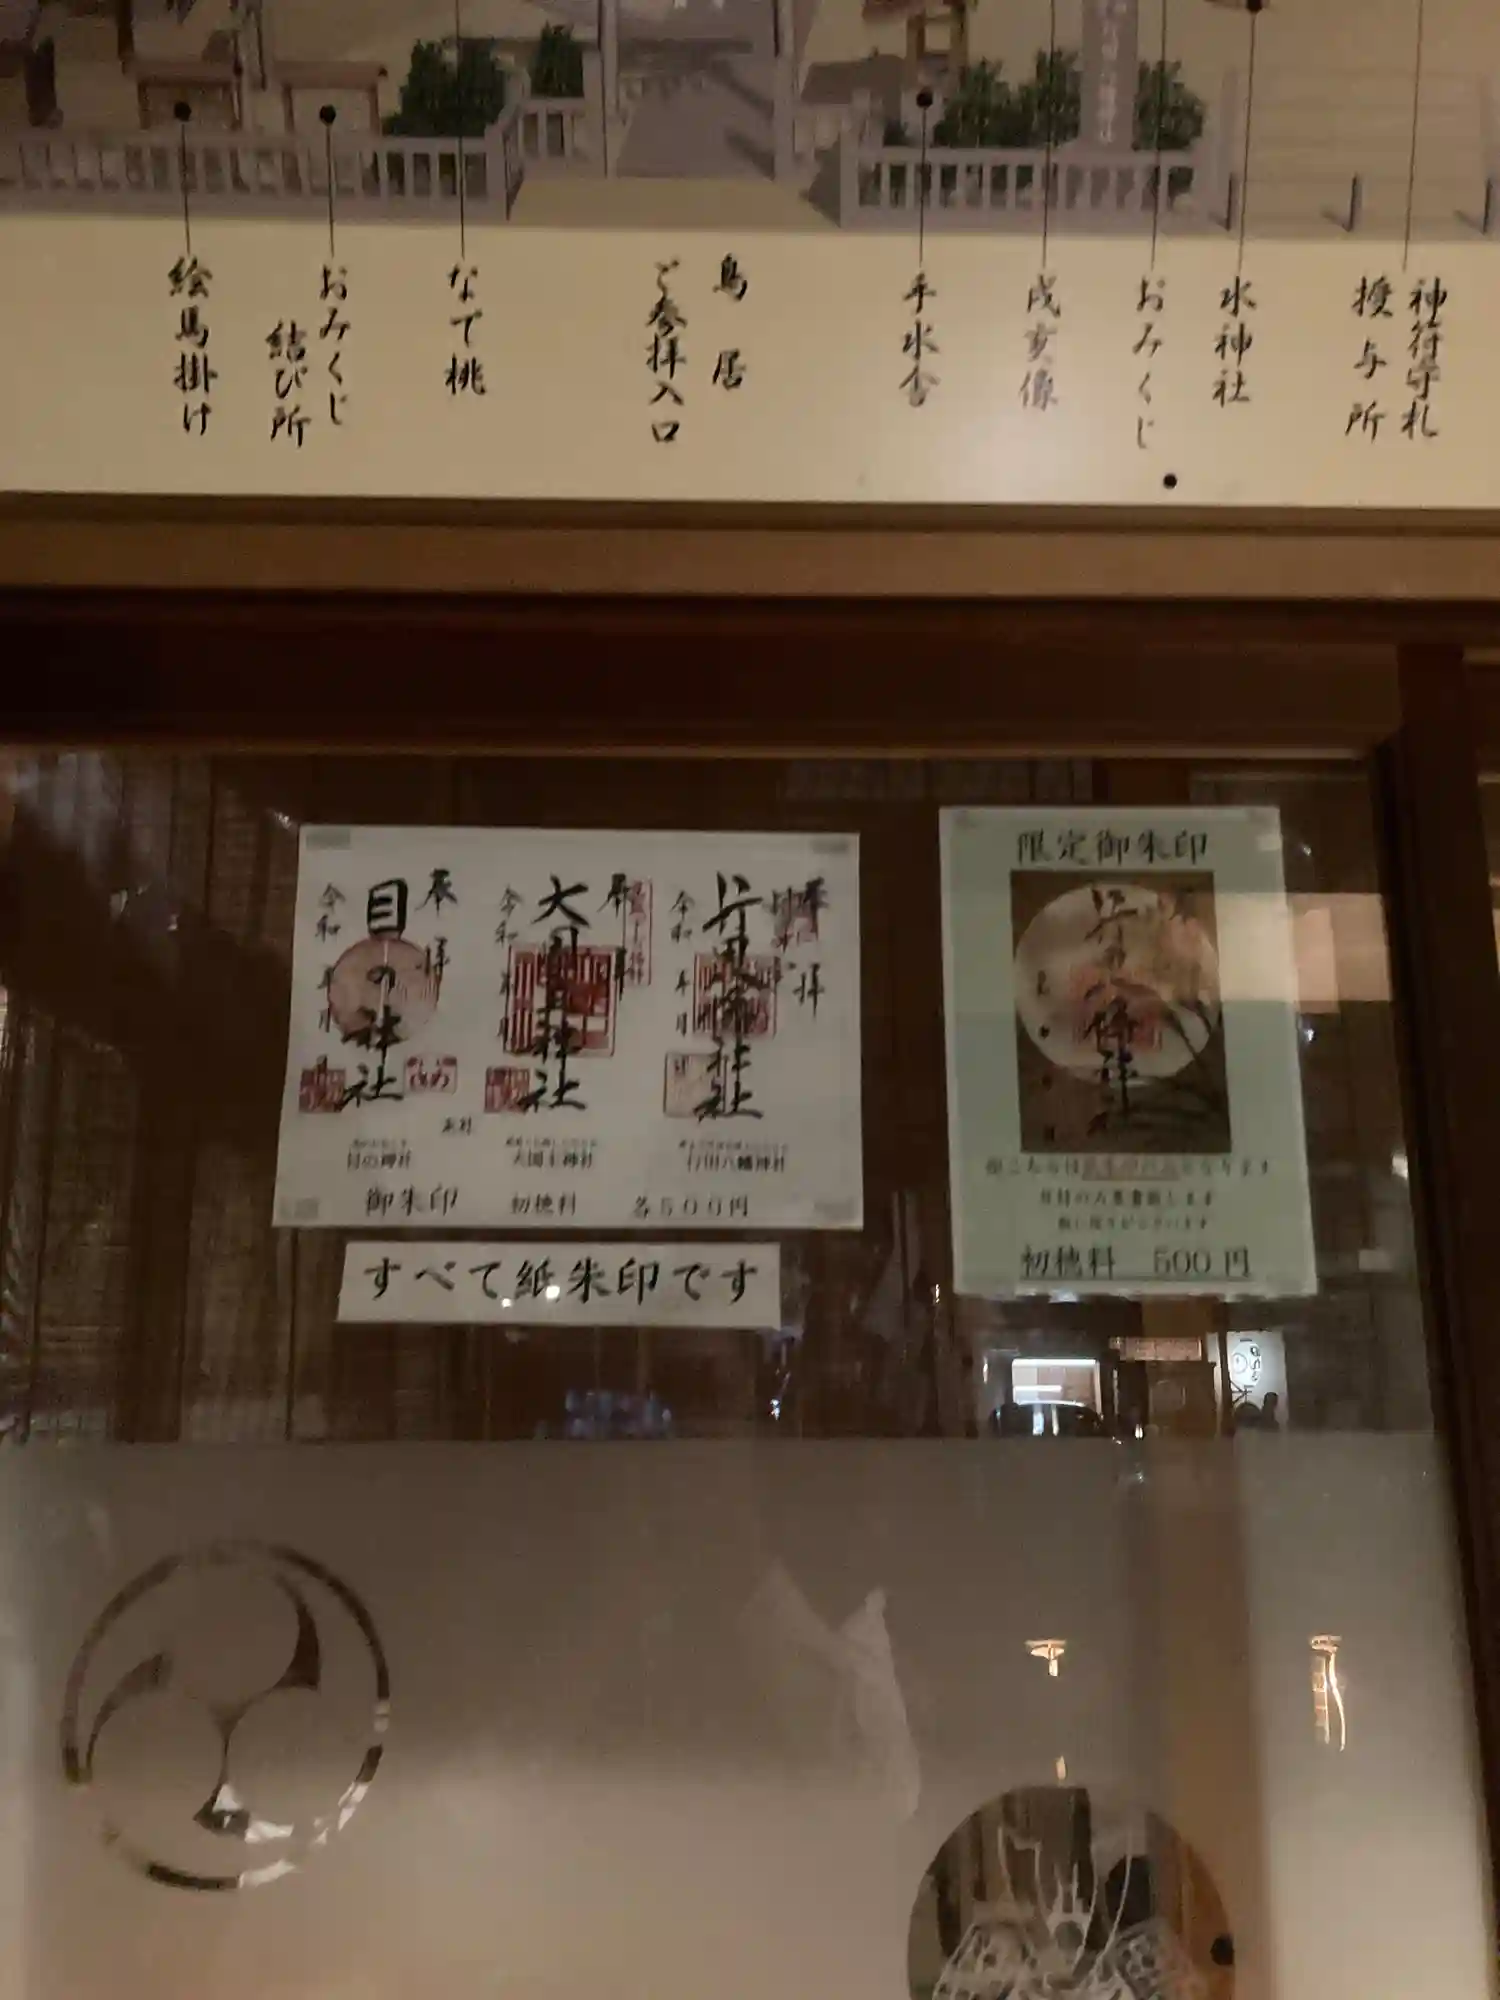 神符守札
授与所
水神社
おみくじ
戌亥像
手水舎
鳥居
ご参拝入口
なで桃
おみくじ
結び所
絵馬掛け
奉拝
行田八幡神社
令和 年 月
奉拝
大国主神社
令和 年 月
奉拝
目の神社
令和 年 月 日
末社
目の神社
大国主神社
行田八幡神社
御朱印 初穂料 各500円
すべて紙朱印です
限定御朱印
行田八幡神社
初穂料 500円